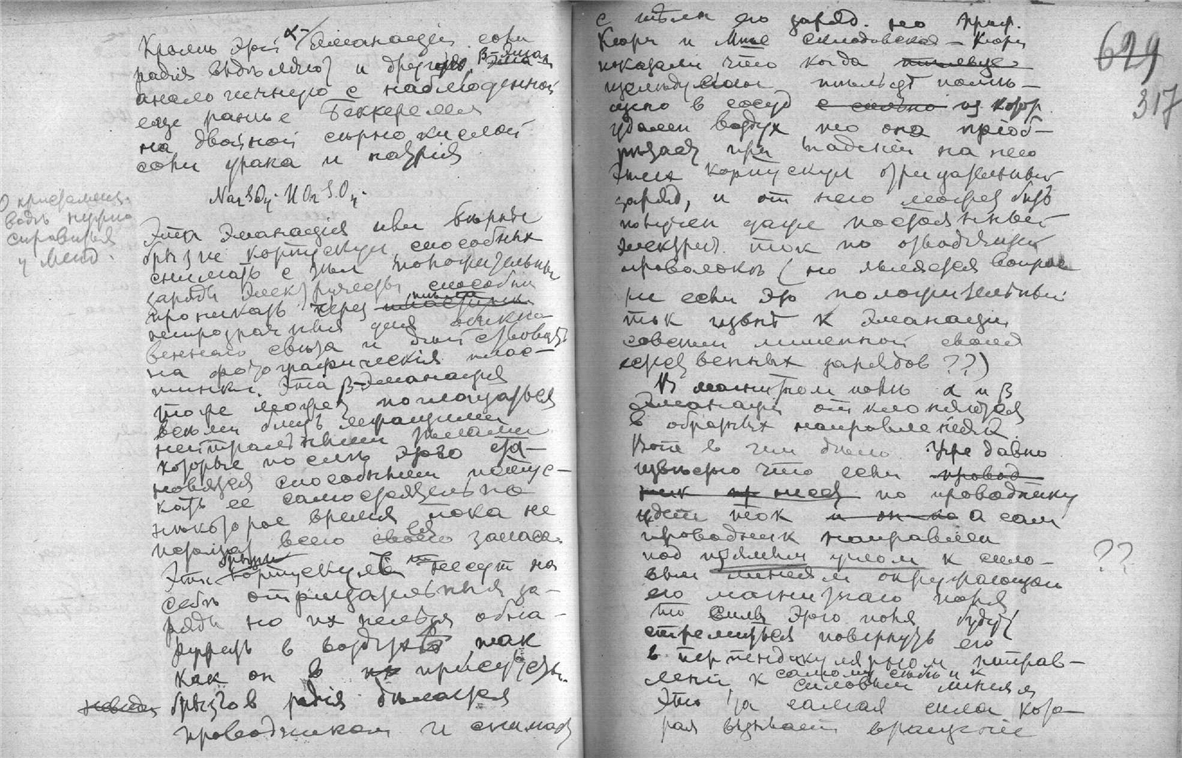 Кроме этой α-Эманаціи соли
радія выделяют и другую, β-Эманац.
аналогичную с наблюденной
еще раньше Беккерелем
на двойной сернокислой
соли урана и натрія
Na₂SO₄ · UO₂SO₄.
О кристаллиз.
воде нужно
справиться
у Менд.
Эта Эманація или верне
брызги корпускул способных
снимать с тел положительные
заряды электричества способны
проникать через пластинки
непрозрачныя для обыкно
венного света и действовать
на фотографическія плас-
тинки. Эта β-Эманація
тоже может поглощаться
всеми близ лежащими
нейтральными телами
которые по силе этого ста-
новятся способными испус-
кать ее самостоятельно
некоторое время пока не
всего своего запаса
Эти корпускулы несут на
себе отрицательныя за-
ряды но их нельзя обна-
ружить в воздухе так
как он в присутств.
брызгов радія делается
проводником и снимает
с тела его заряд. но Проф.
Кюри и Mme Склодовская-Кюри
показали что когда
в сосуд из котор.
удален воздух то она приоб-
ретает при падении на него
этих корпускул отрицательный
заряд, и от него может быть
получен даже постоянный
электрич. ток по отводящей
проволоке (но является вопрос
не есть это положительный
ток идет к Эманации
совсем лишенной своих
собственных зарядов ??)
В магнитном поле α и β
Эманации отклоняются
в обратных направлениях
Вот в чем дело. Уже давно
известно что если провод
ник несет по проводнику
идет ток а сам
проводник направлен
под прямым углом к сило-
вым линиям окружающаго
его магнитнаго поля
то силы этого поля будут
стремиться повернуть его
в перпендикулярном направ-
лении к самому себе и к
силовым линиям
Это та самая сила кото-
рая вызывает вращение
629
317
??